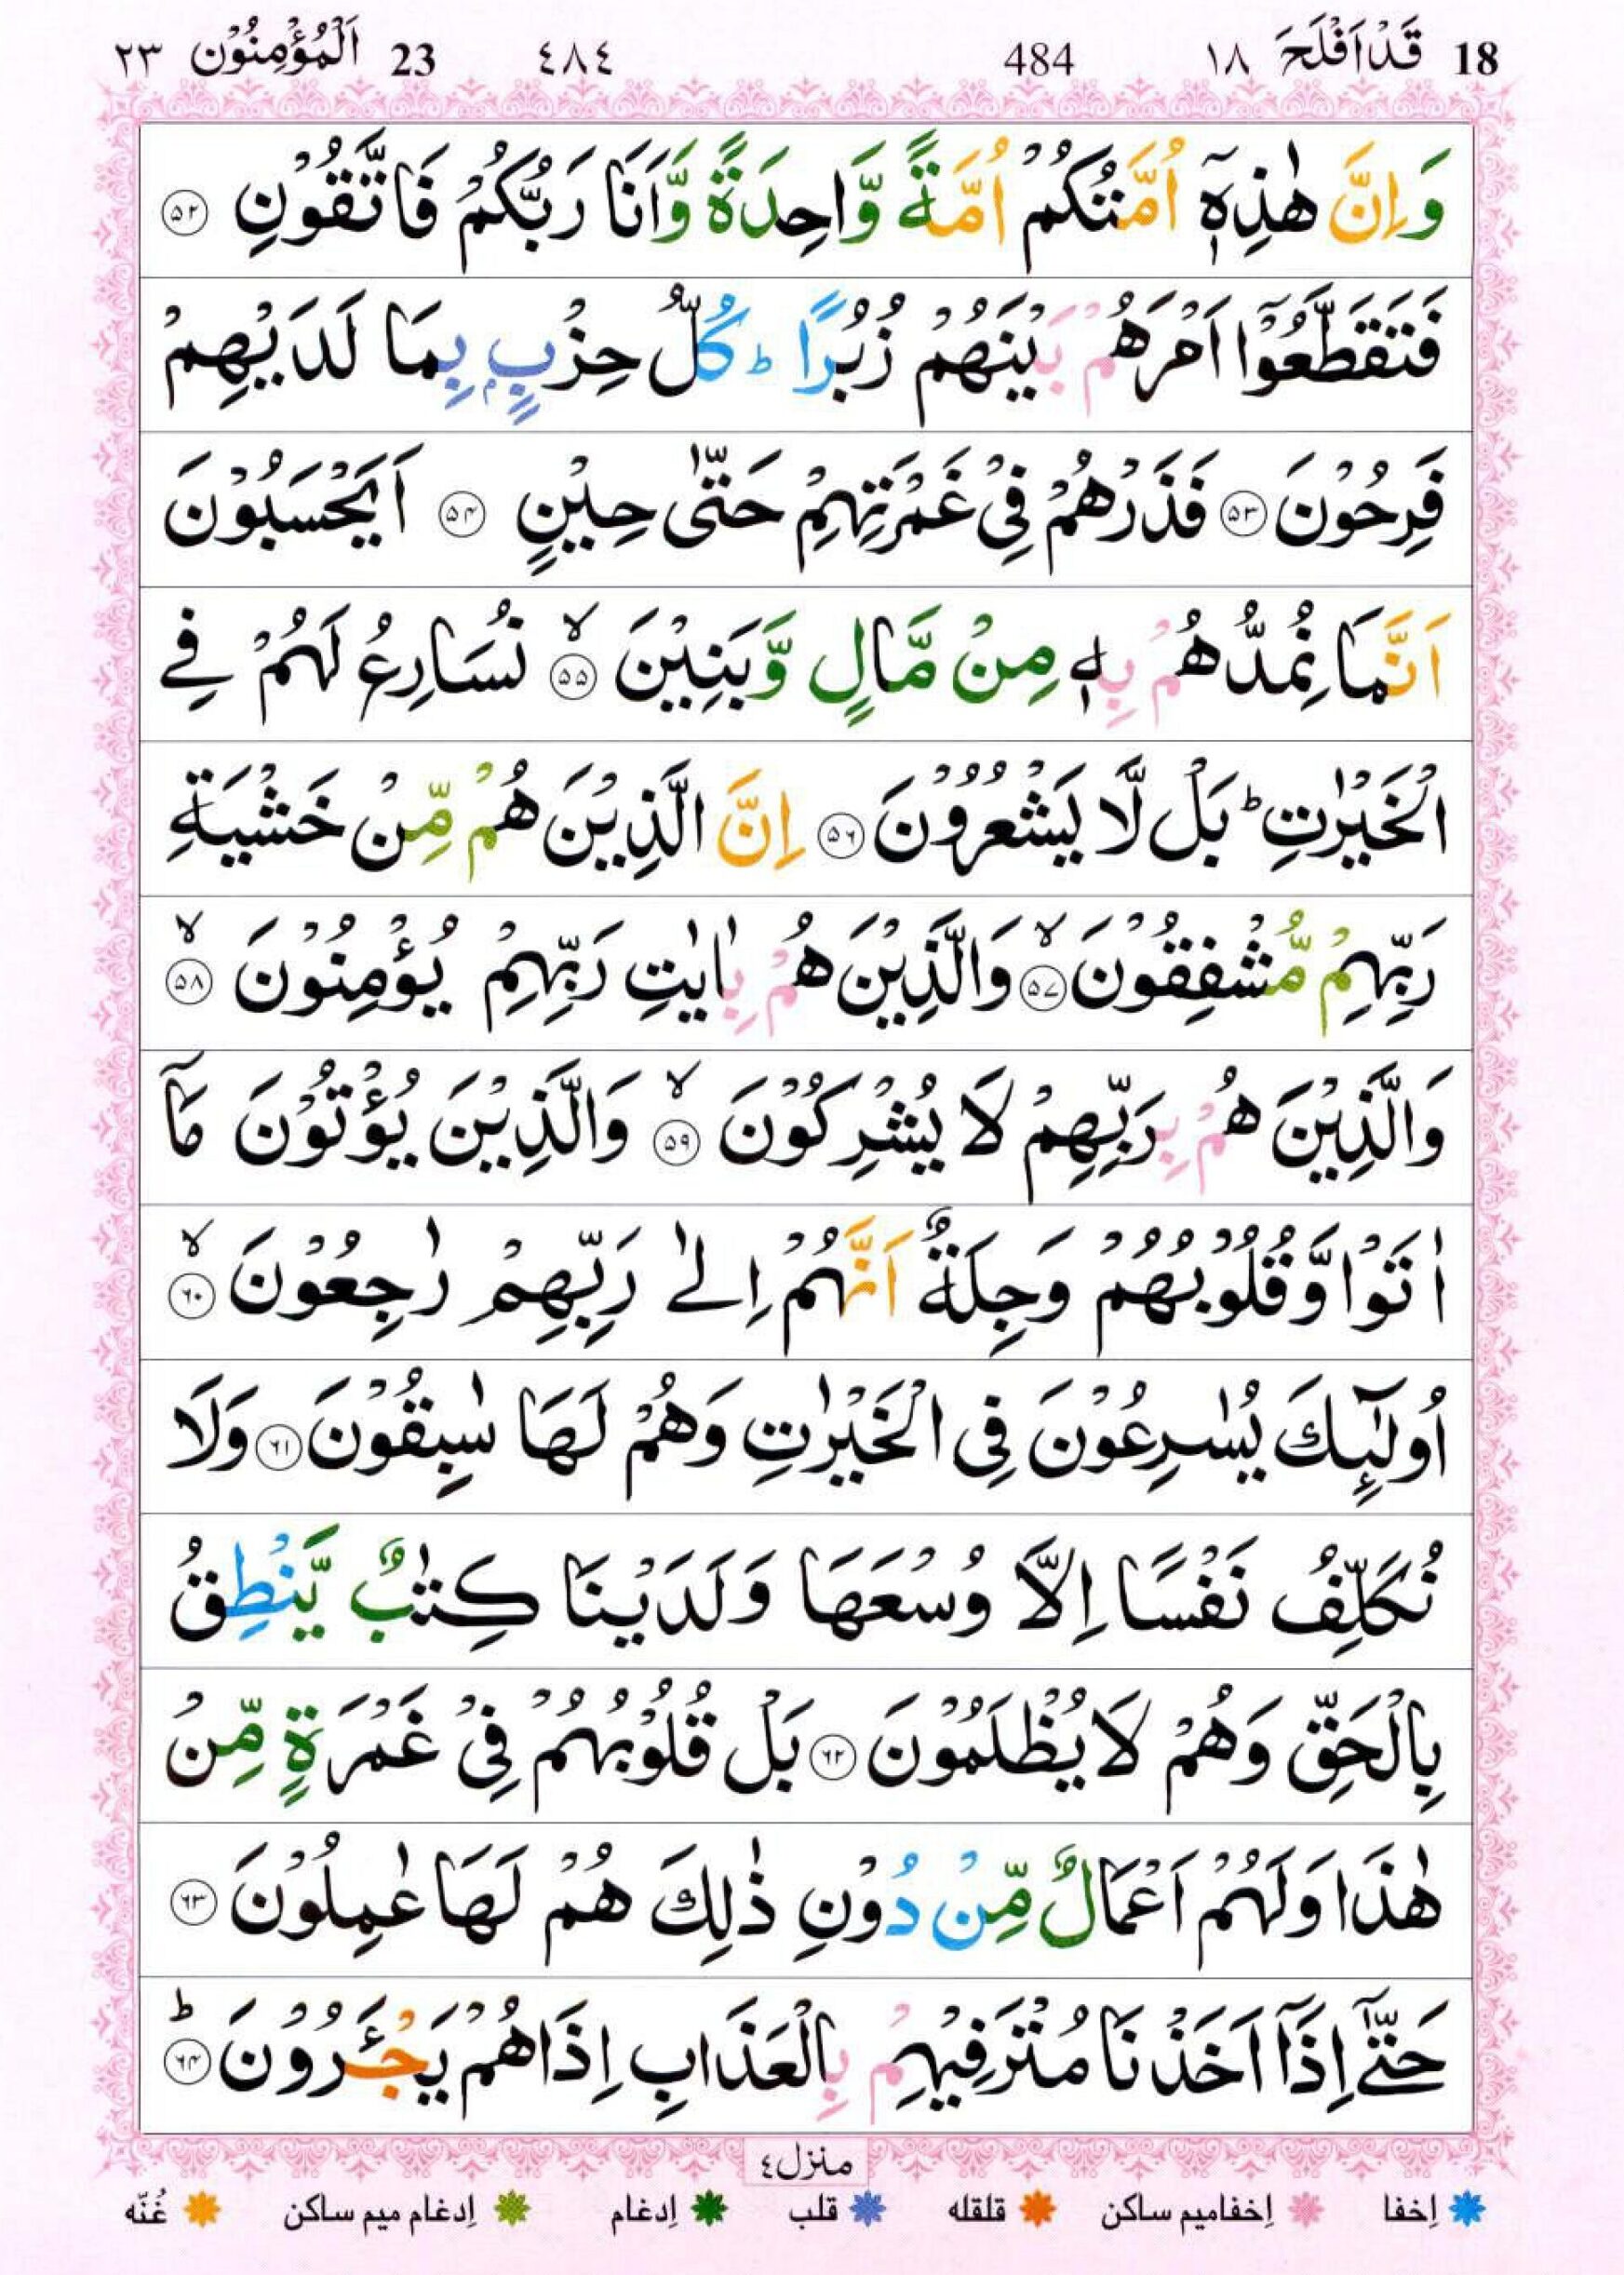 18 قَدْاَفْلَحَ ١٨ 484 ٤٨٤ 23 اَلْمُؤْمِنُوْن ٢٣
وَاِنَّ هٰذِهٖۤ اُمَّتُكُمْ اُمَّةً وَّاحِدَةً وَّاَنَا رَبُّكُمْ فَاتَّقُوْنِ ۝۵۲
فَتَقَطَّعُوْۤا اَمْرَهُمْ بَيْنَهُمْ زُبُرًا ؕ كُلُّ حِزْبٍۭ بِمَا لَدَيْهِمْ
فَرِحُوْنَ ۝۵۳ فَذَرْهُمْ فِىْ غَمْرَتِهِمْ حَتّٰى حِيْنٍ ۝۵۴ اَيَحْسَبُوْنَ
اَنَّمَا نُمِدُّهُمْ بِهٖ مِنْ مَّالٍ وَّبَنِيْنَ ۙ۝۵۵ نُسَارِعُ لَهُمْ فِے
الْخَيْرٰتِ ؕ بَلْ لَّا يَشْعُرُوْنَ ۝۵۶ اِنَّ الَّذِيْنَ هُمْ مِّنْ خَشْيَةِ
رَبِّهِمْ مُّشْفِقُوْنَ ۙ۝۵۷ وَالَّذِيْنَ هُمْ بِاٰيٰتِ رَبِّهِمْ يُؤْمِنُوْنَ ۙ۝۵۸
وَالَّذِيْنَ هُمْ بِرَبِّهِمْ لَا يُشْرِكُوْنَ ۙ۝۵۹ وَالَّذِيْنَ يُؤْتُوْنَ مَاۤ
اٰتَوْا وَّقُلُوْبُهُمْ وَجِلَةٌ اَنَّهُمْ اِلٰے رَبِّهِمْ رٰجِعُوْنَ ۙ۝۶۰
اُولٰٓئِكَ يُسٰرِعُوْنَ فِى الْخَيْرٰتِ وَهُمْ لَهَا سٰبِقُوْنَ ۝۶۱ وَلَا
نُكَلِّفُ نَفْسًا اِلَّا وُسْعَهَا وَلَدَيْنَا كِتٰبٌ يَّنْطِقُ
بِالْحَقِّ وَهُمْ لَا يُظْلَمُوْنَ ۝۶۲ بَلْ قُلُوْبُهُمْ فِىْ غَمْرَةٍ مِّنْ
هٰذَا وَلَهُمْ اَعْمَالٌ مِّنْ دُوْنِ ذٰلِكَ هُمْ لَهَا عٰمِلُوْنَ ۝۶۳
حَتّٰٓے اِذَاۤ اَخَذْنَا مُتْرَفِيْهِمْ بِالْعَذَابِ اِذَا هُمْ يَجْئَرُوْنَ ؕ۝۶۴
منزل٤
اِخفا اِخفامیم ساکن قلقله قلب اِدغام اِدغام میم ساکن غُنّه